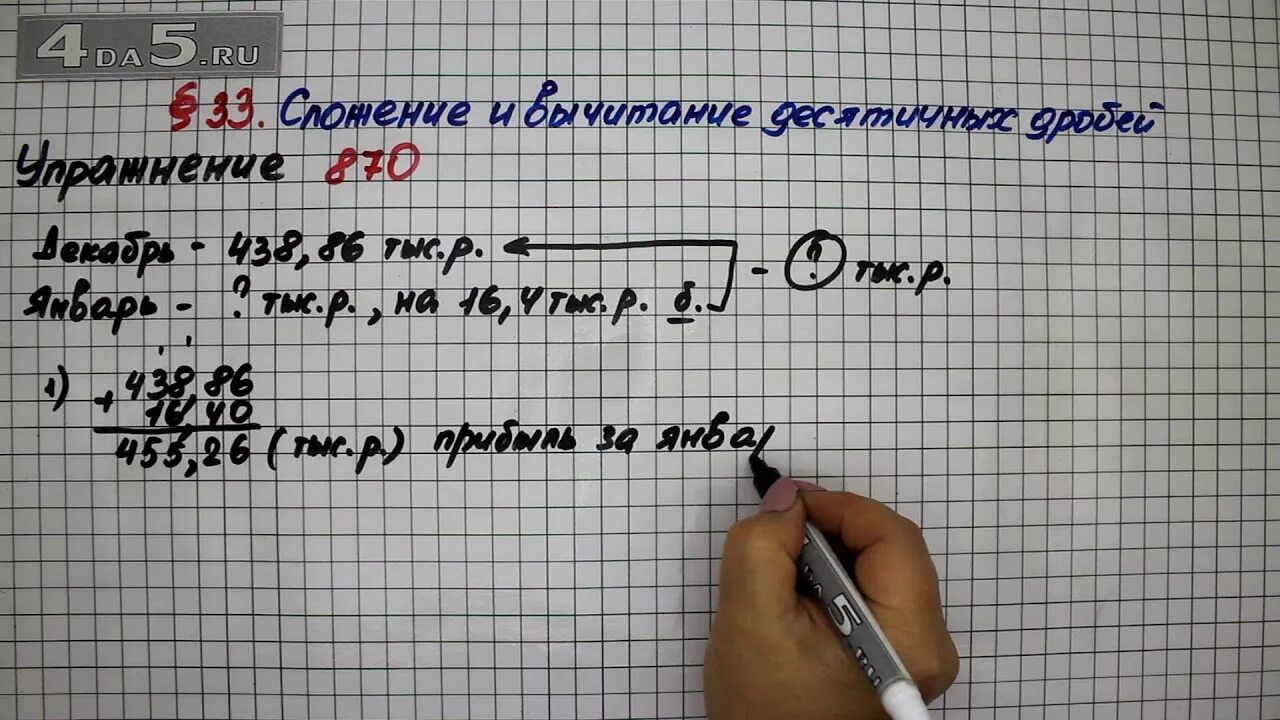 4DA5.RU
§ 33. Сложение и вычитание десятичных дробей
Упражнение 870
Декабрь - 438,86 тыс.р. - ? тыс.р.
Январь - ? тыс.р., на 16,4 тыс.р. б.
1) 438,86
+ 16,40
455,26 (тыс.р.) прибыль за янва
4DA5.RU